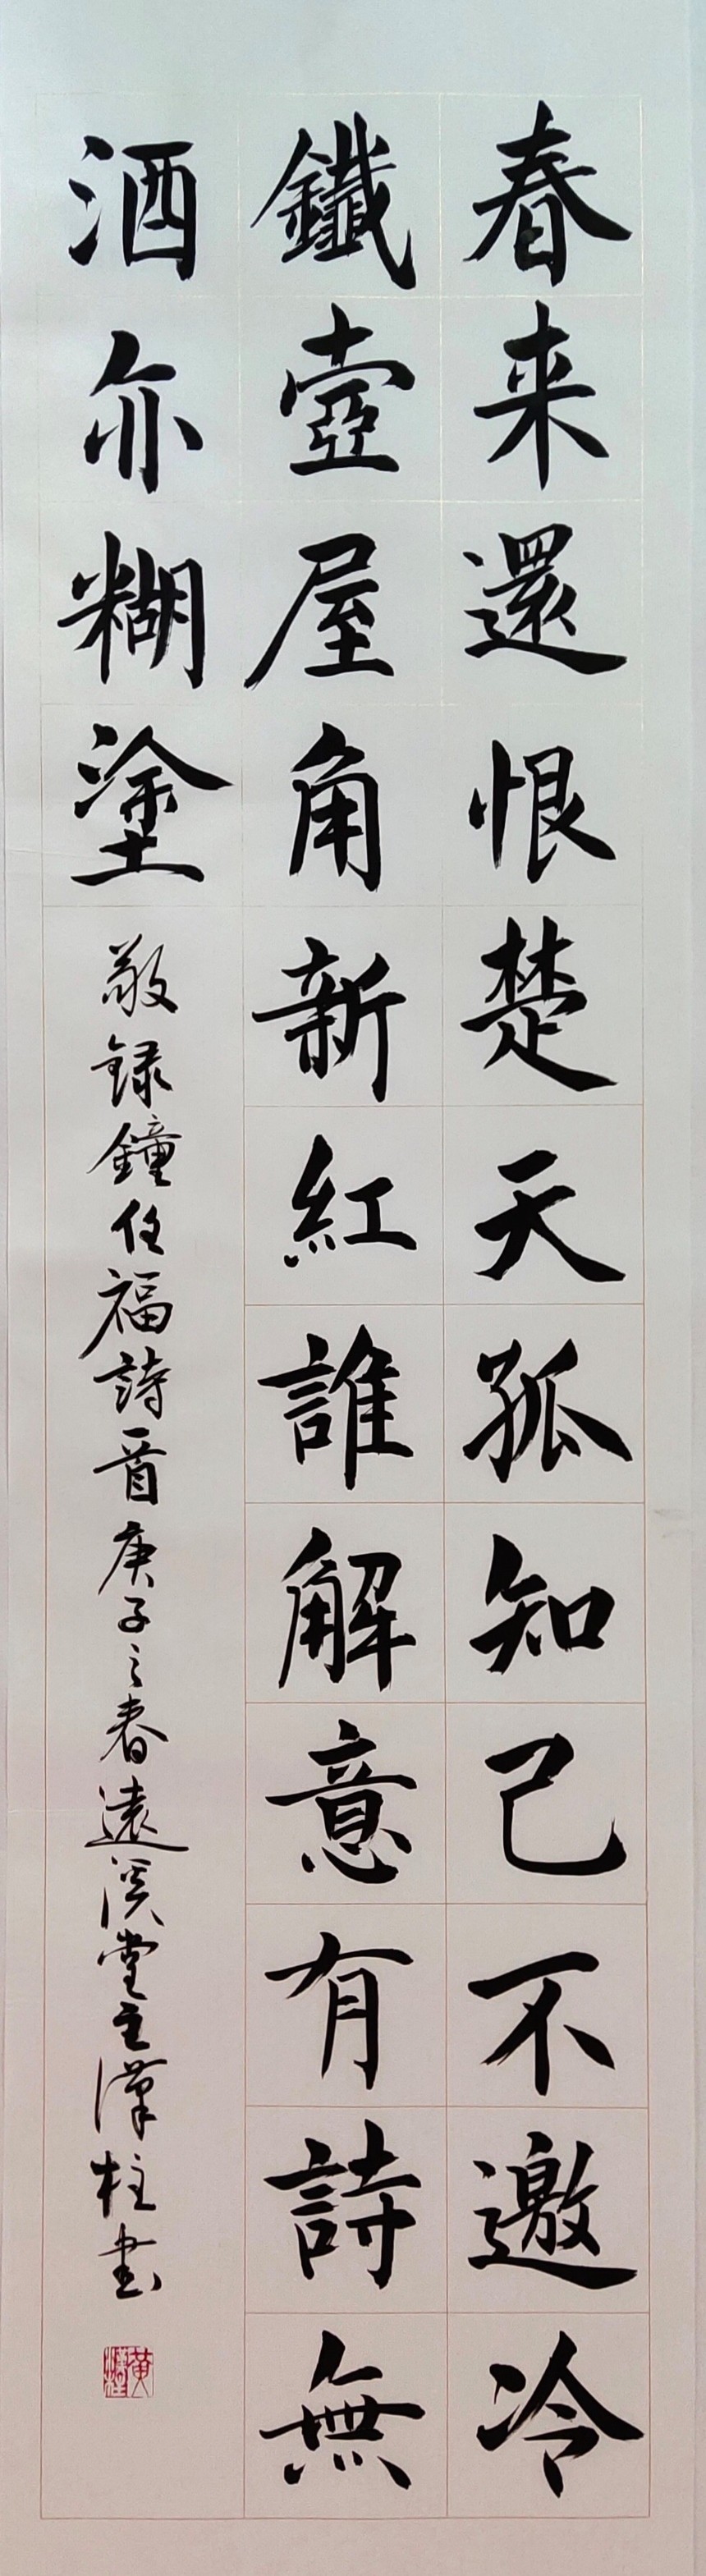 春来還恨楚天孤知己不邀冷
鐵壺屋角新紅誰解意有詩無
酒亦糊塗
敬録鐘任福詩一首庚子之春遠溪堂主漢柱書
黄漢柱